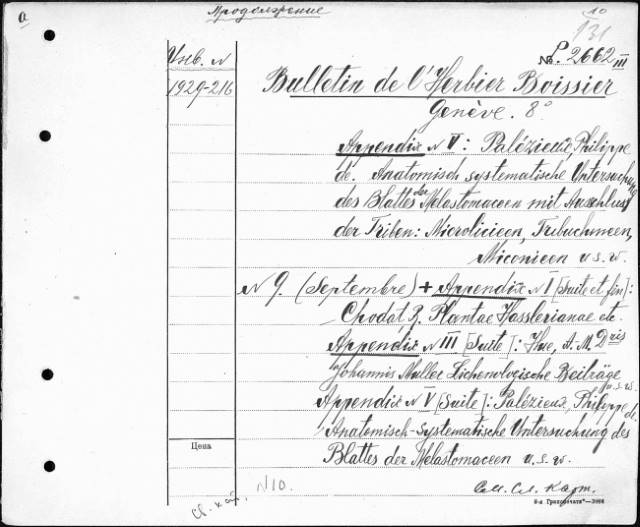 Продолжение
10
131
№. P. 2662 III
Инв. N
1929-216
Bulletin de l'Herbier Boissier
Genève. 8°
Appendix N V: Palézieux, Philippe
de. Anatomisch systematische Untersuchung
des Blattes der Melastomaceen mit Ausschluss
der Triben: Microlicieen, Tibouchineen,
Miconieen u.s.w.
N 9. (Septembre) + Appendix N I [Suite et fin]:
Chodat R. Plantae Hasslerianae etc.
Appendix N III [Suite]: Hue, A. M. Dris
Johannis Muller Lichenologische Beiträge
u.s.w.
Appendix N V [Suite]: Palézieux, Philippe de.
Anatomisch-systematische Untersuchung des
Blattes der Melastomaceen u.s.w.
Цена
N10.
См. сл. карт.